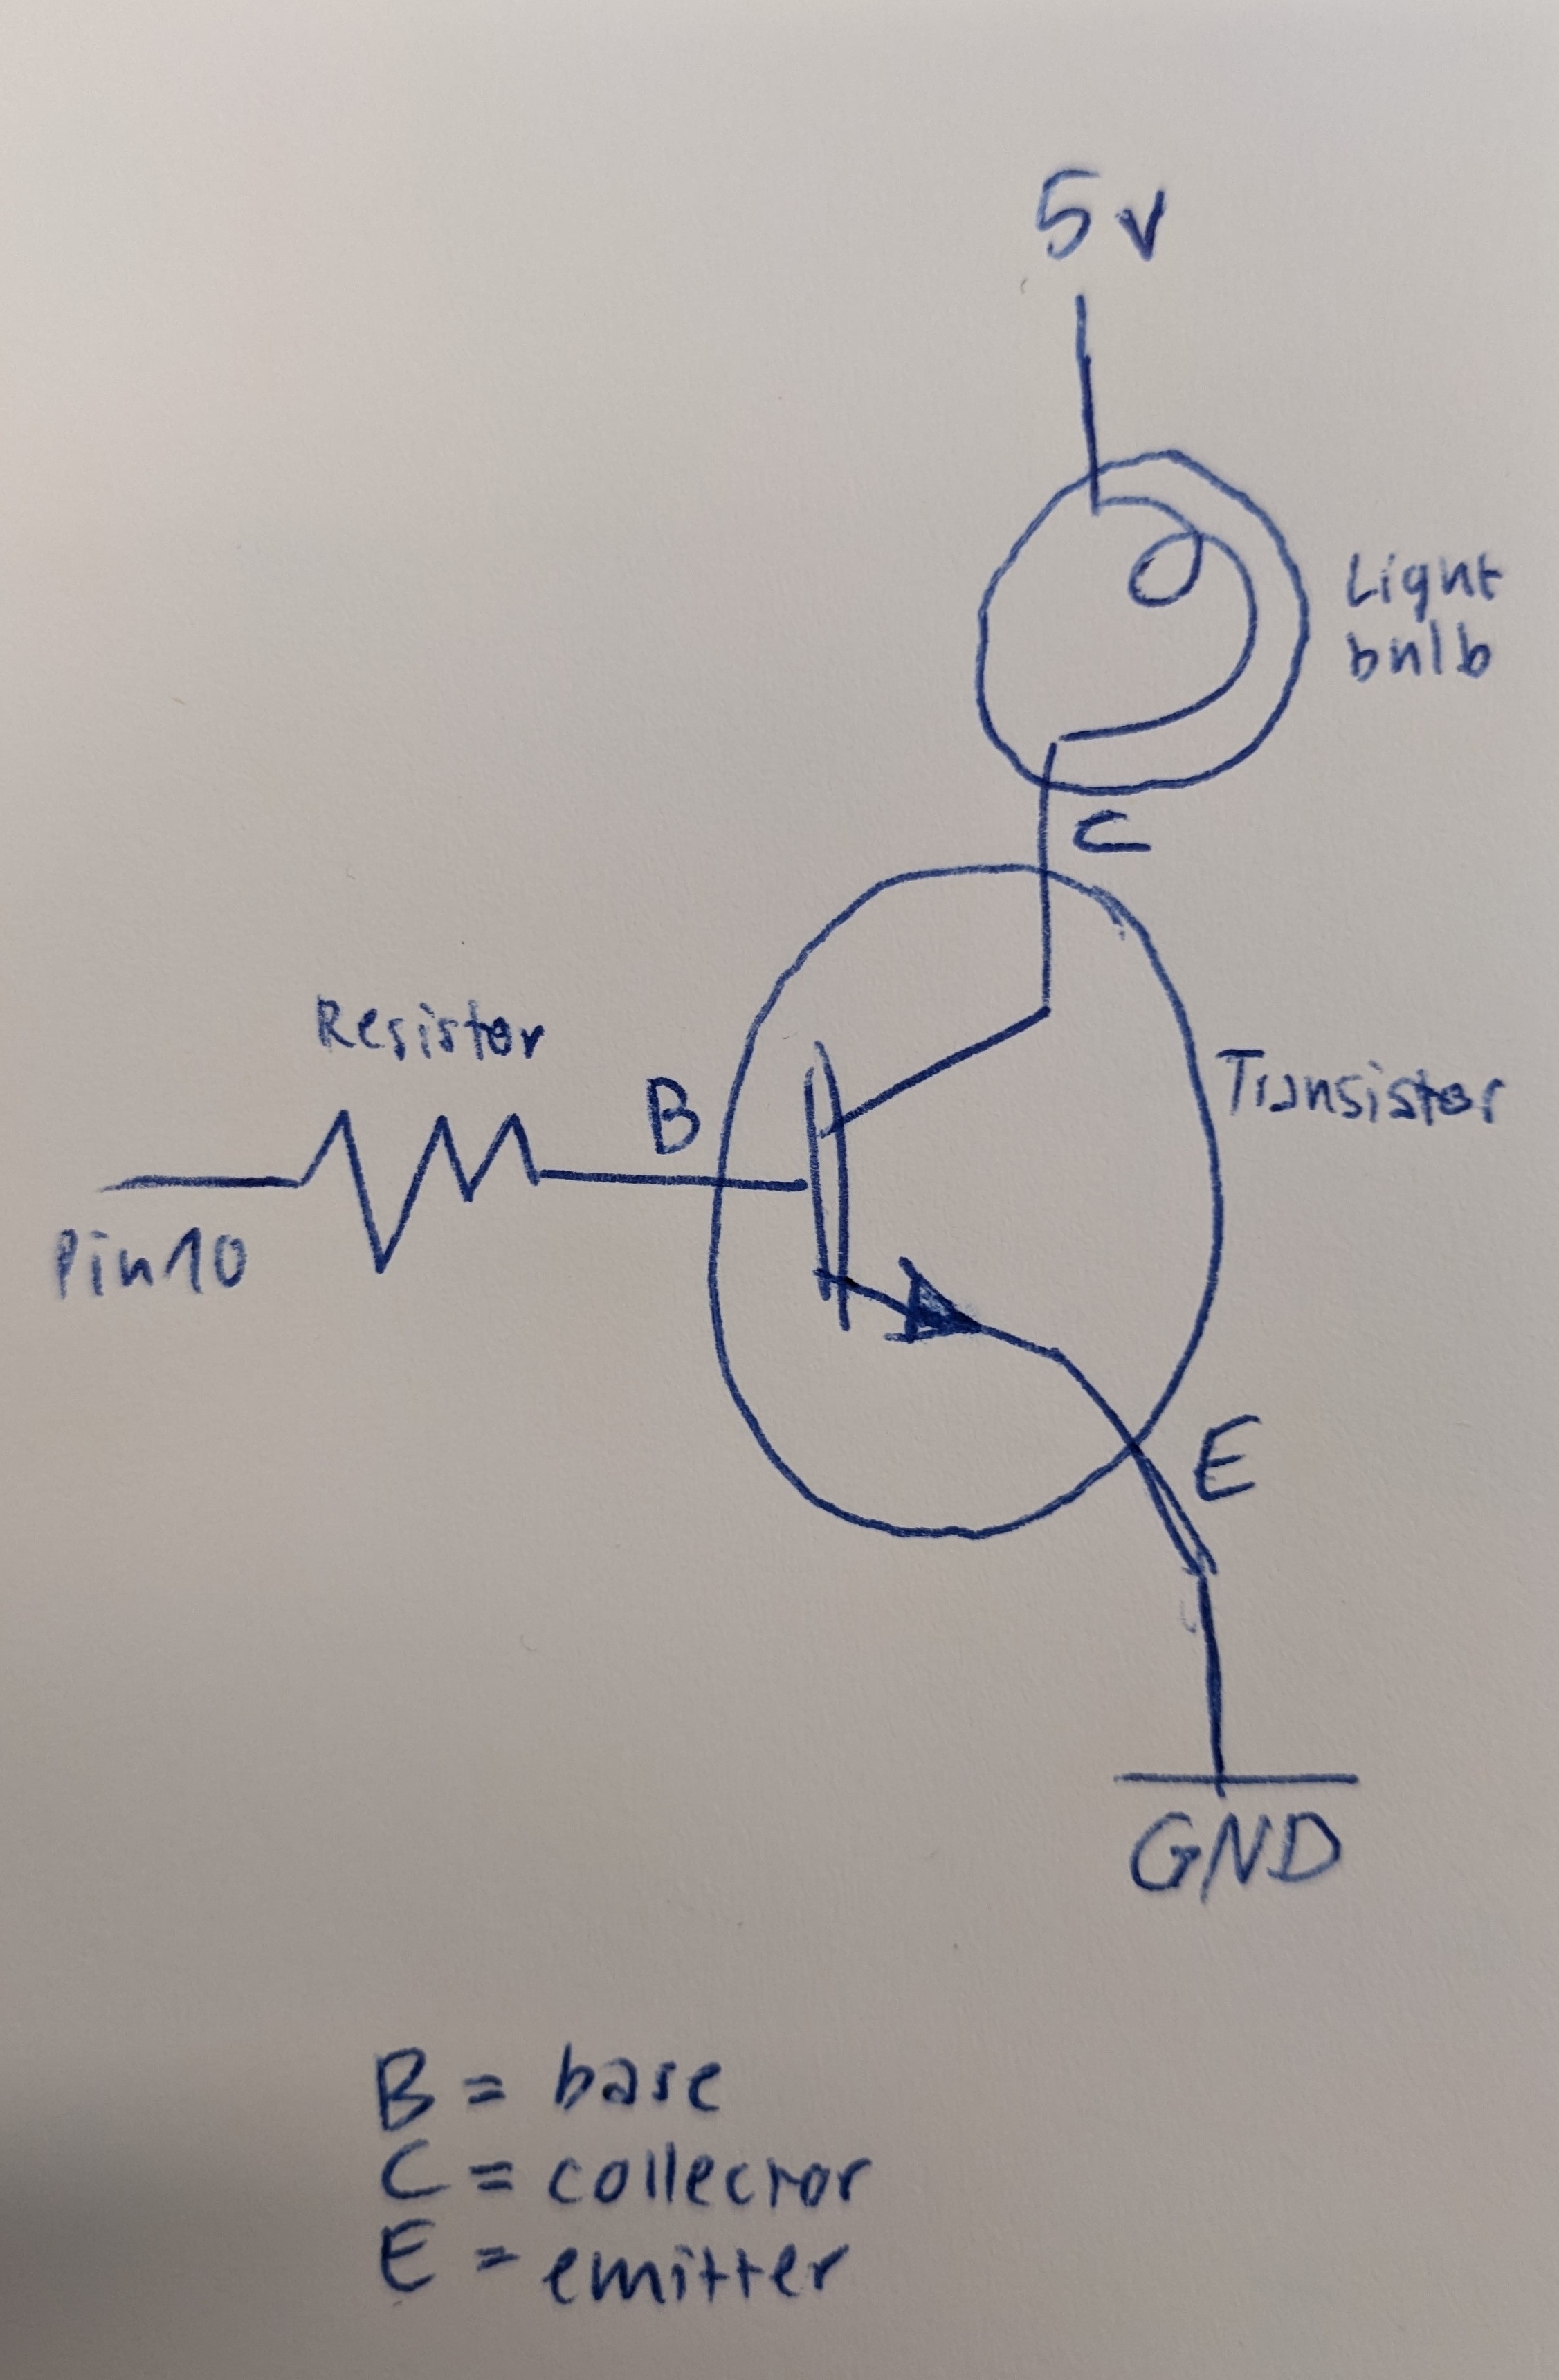 5v
Light
bulb
C
Resistor
B
Transistor
Pin10
E
GND
B = base
C = collector
E = emitter